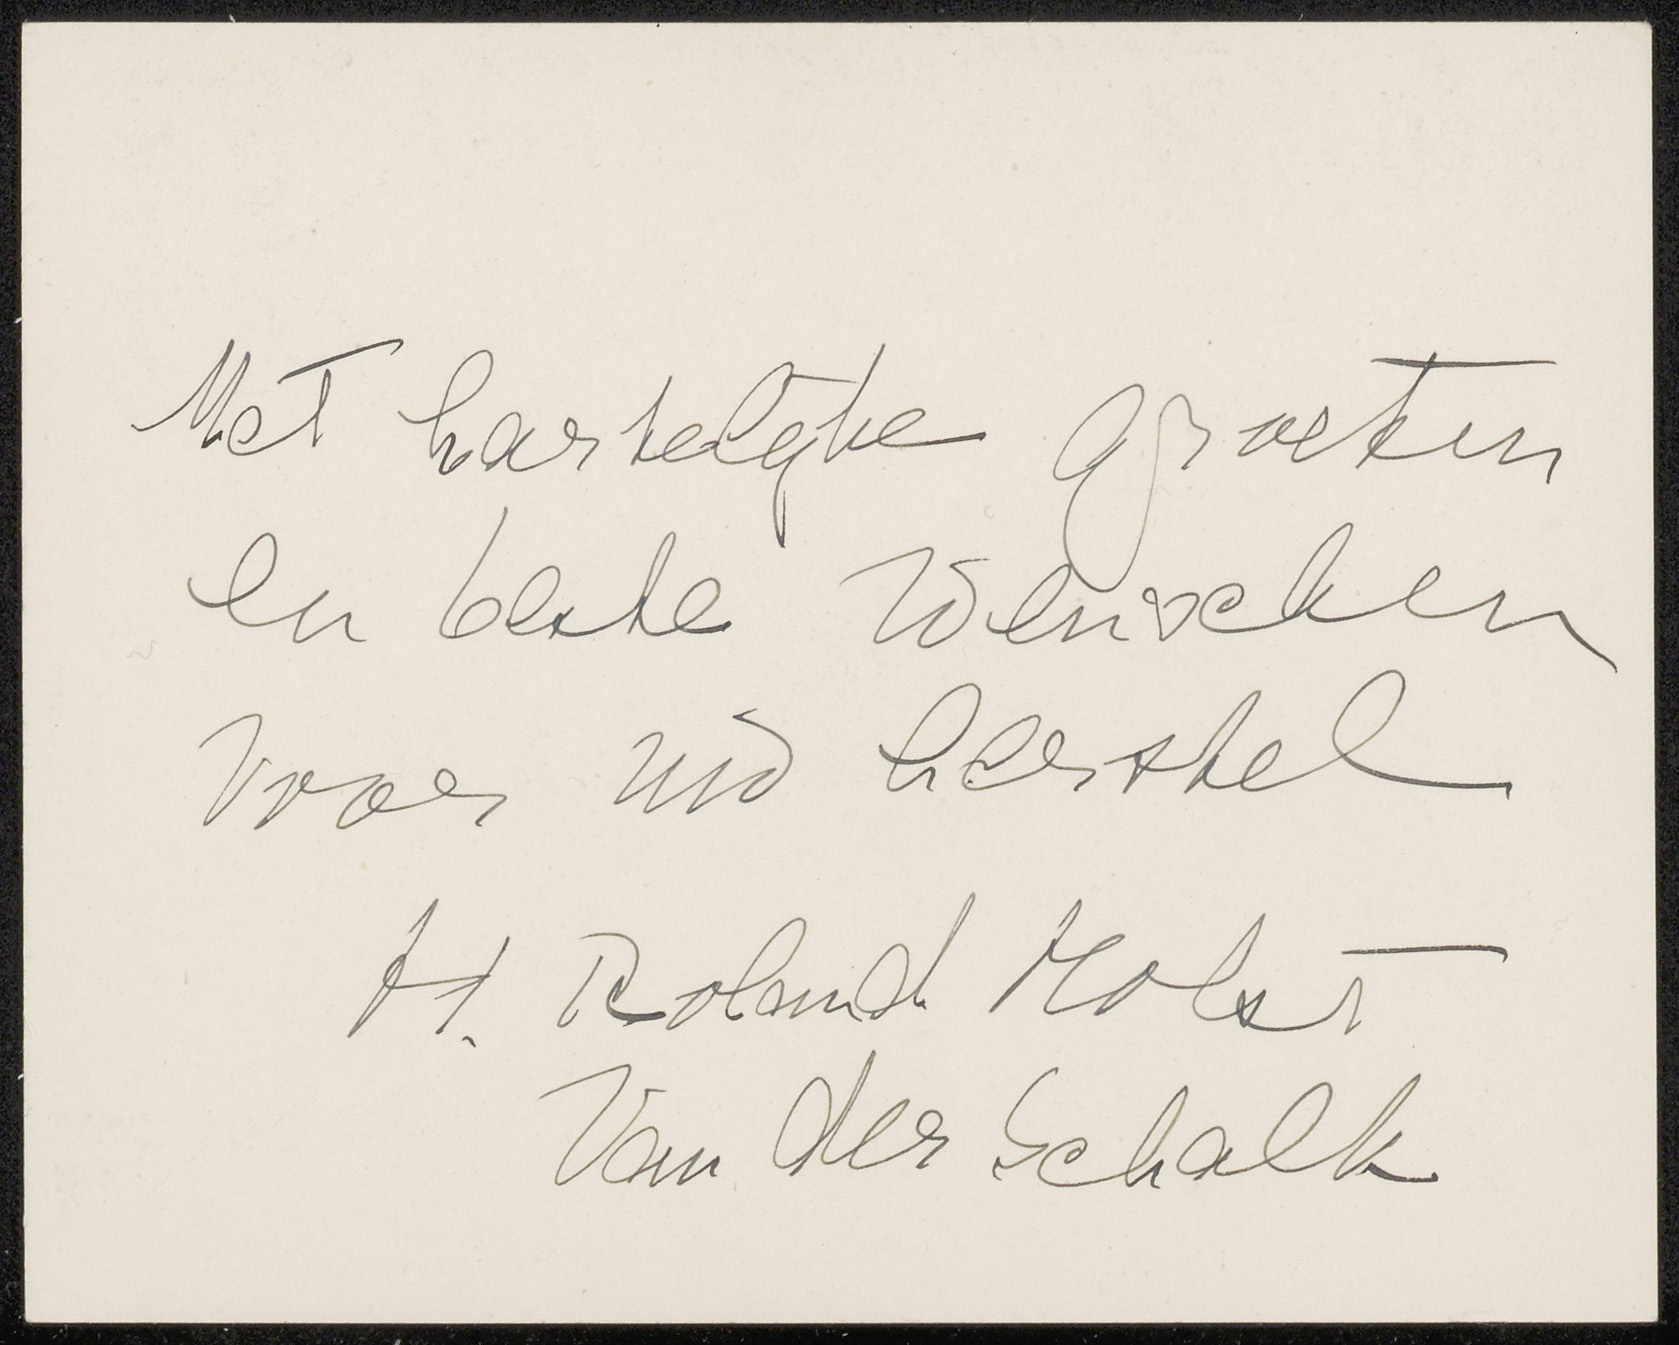 Met hartelijke groeten
en beste wenschen
voor uw herstel
H. Roland Holst
Van der Schalk